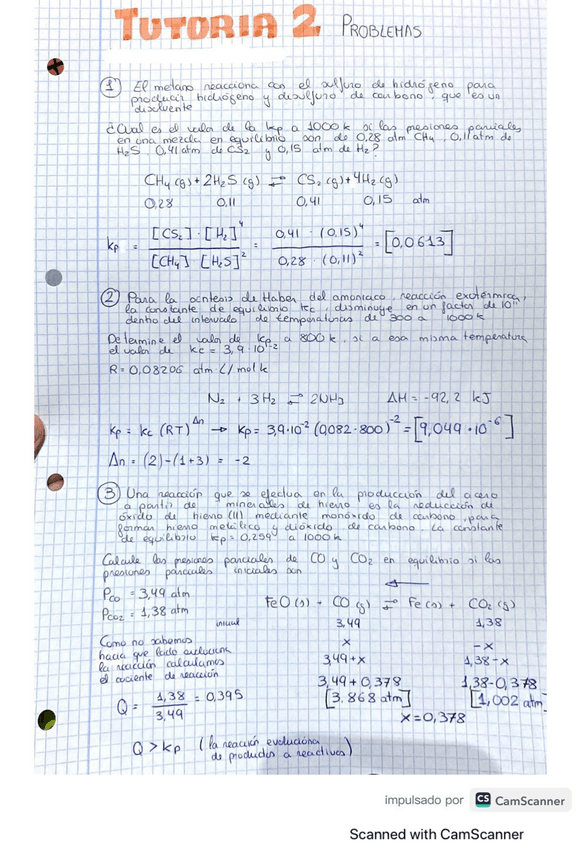 TUTORIA 2 PROBLEMAS
① El metano reacciona con el sulfuro de hidrógeno para
producir hidrógeno y disulfuro de carbono, que es un
disolvente
¿Cual es el valor de la kp a 1000k si las presiones parciales
en una mezcla en equilibrio son de 0,28 atm CH4, 0,11 atm de
H2S 0,41 atm de CS2 y 0,15 atm de H2?
CH4 (g) + 2H2S (g) ⇌ CS2 (g) + 4H2 (g)
0,28 0,11 0,41 0,15 atm
kp = [CS2]·[H2]⁴ / [CH4] [H2S]² = 0,41 · (0,15)⁴ / 0,28 · (0,11)² = [0,0613]
② Para la síntesis de Haber del amoniaco, reacción exotérmica,
la constante de equilibrio kc, disminuye en un factor de 10¹¹
dentro del intervalo de temperaturas de 300 a 1000k
Determine el valor de kp a 800k, si a esa misma temperatura
el valor de kc = 3,9·10⁻²
R = 0,08206 atm·L/mol k
N2 + 3H2 ⇌ 2NH3 ΔH = -92,2 kJ
kp = kc (RT)^Δn → kp = 3,9·10⁻² (0,082·800)⁻² = [9,049·10⁻⁶]
Δn = (2)-(1+3) = -2
③ Una reacción que se efectua en la producción del acero
a partir de minerales de hierro es la reducción de
óxido de hierro (II) mediante monóxido de carbono, para
formar hierro metálico y dióxido de carbono. La constante
de equilibrio kp = 0,259 a 1000k
Calcule las presiones parciales de CO y CO2 en equilibrio si las
presiones parciales iniciales son
Pco = 3,49 atm
Pco2 = 1,38 atm
FeO (s) + CO (g) ⇌ Fe (s) + CO2 (g)
inicial 3,49 1,38
x -x
3,49+x 1,38-x
3,49+0,378 1,38-0,378
[3,868 atm] [1,002 atm]
x=0,378
Como no sabemos
hacia que lado evoluciona
la reacción calculamos
el cociente de reacción
Q = 1,38 / 3,49 = 0,395
Q > kp (la reacción evoluciona
de productos a reactivos)
impulsado por CS CamScanner
Scanned with CamScanner